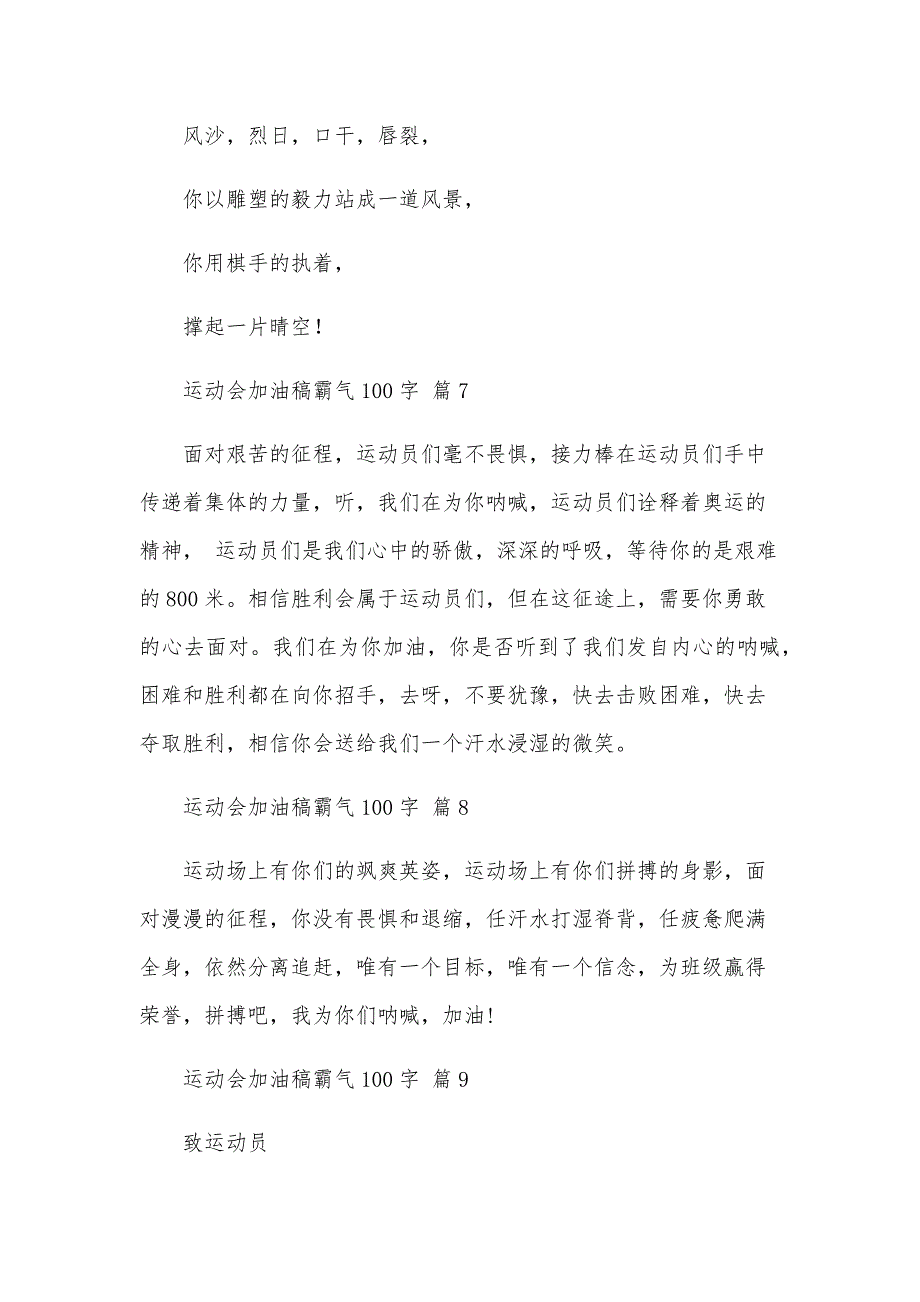 风沙，烈日，口干，唇裂，
你以雕塑的毅力站成一道风景，
你用棋手的执着，
撑起一片晴空！
运动会加油稿霸气 100 字 篇 7
面对艰苦的征程，运动员们毫不畏惧，接力棒在运动员们手中
传递着集体的力量，听，我们在为你呐喊，运动员们诠释着奥运的
精神， 运动员们是我们心中的骄傲，深深的呼吸，等待你的是艰难
的 800 米。相信胜利会属于运动员们，但在这征途上，需要你勇敢
的心去面对。我们在为你加油，你是否听到了我们发自内心的呐喊，
困难和胜利都在向你招手，去呀，不要犹豫，快去击败困难，快去
夺取胜利，相信你会送给我们一个汗水浸湿的微笑。
运动会加油稿霸气 100 字 篇 8
运动场上有你们的飒爽英姿，运动场上有你们拼搏的身影，面
对漫漫的征程，你没有畏惧和退缩，任汗水打湿脊背，任疲惫爬满
全身，依然分离追赶，唯有一个目标，唯有一个信念，为班级赢得
荣誉，拼搏吧，我为你们呐喊，加油！
运动会加油稿霸气 100 字 篇 9
致运动员